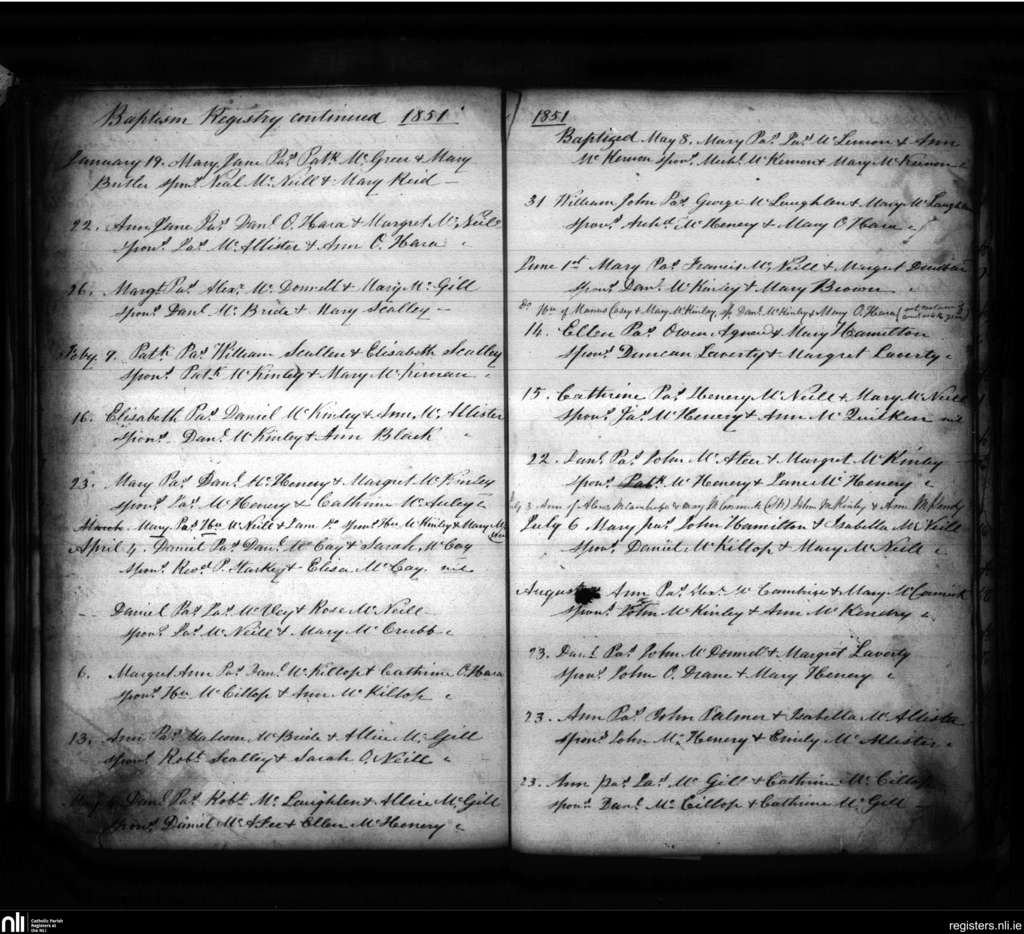 Baptism Registry continued 1851
January 19. Mary Jane Pas Patk McGree & Mary
Butler spons Neal McNeill & Mary Reid
22. Ann Jane Pas Danl O.Hara & Margret McNeill
spons Jas McAllister & Ann O.Hara
26. Margt Pas Alexr McDonnell & Mary McGill
spons Danl McBride & Mary Scalley
Feby 9. Patk Pas William Scullen & Elisabeth Scalley
spons Patk McKinley & Mary McKernan
16. Elisabeth Pas Daniel McKinley & Ann McAllister
spons Danl McKinley & Ann Black
23. Mary Pas Danl McHenery & Margret McKinley
spons Jas McHenery & Cathrine McAuley
March Mary Pas Hu McNeill & Jane spons Hu McKinley & Mary
April 4. Daniel Pas Danl McCay & Sarah McCay
spons Revd P. Starkey & Elisa McCay. nil
Daniel Pas Jas McVey & Rose McNeill
spons Jas McNeill & Mary McCrubb
6. Margret Ann Pas Danl McKillop & Cathrine O.Hara
spons Hu McCillop & Ann McKillop
13. Ann Pas Malcom McBride & Allice McGill
spons Robt Scalley & Sarah O.Neill
May Danl Pas Robt McLaughlen & Allice McGill
spons Daniel McAfee & Ellen McHenery
1851
Baptized May 8. Mary Pas Jas McLernon & Ann
McKernon spons Michl McKernon & Mary McKernon
31 William John Pas George McLaughlen & Mary McLaughlen
spons Archd McHenery & Mary O.Hara
June 1st Mary Pas Francis McNeill & Margret
spons Danl McKinley & Mary Brown
Do Hu of Manus Coay & Mary McKinley sp Danl McKinley & Mary O.Hara
14. Ellen Pas Owen Agnew & Mary Hamilton
spons Duncan Laverty & Margret Laverty
15. Cathrine Pas Henery McNeill & Mary McNeill
spons Jas McHenery & Ann McQuilken nil
22. Danl Pas John McAteer & Margret McKinley
spons Patk McHenery & Jane McHenery
3. Ann of Alexr McCambridge & Mary McCormick John McKinley & Ann McKendry
July 6 Mary pas John Hamilton & Isabella McNeill
spons Daniel McKillop & Mary McNeill
August Ann Pas Alexr McCambrige & Mary McCormick
spons John McKinley & Ann McKendry
23. Danl Pas John McDonnell & Margret Laverty
spons John O.Drane & Mary Henery
23. Ann Pas John Palmer & Isabella McAllister
spons John McHenery & Emily McAllister
23. Ann pas Jas McGill & Cathrine McCillop
spons Danl McCillop & Cathrine McGill
nli
Catholic Parish
Registers at
the NLI
registers.nli.ie